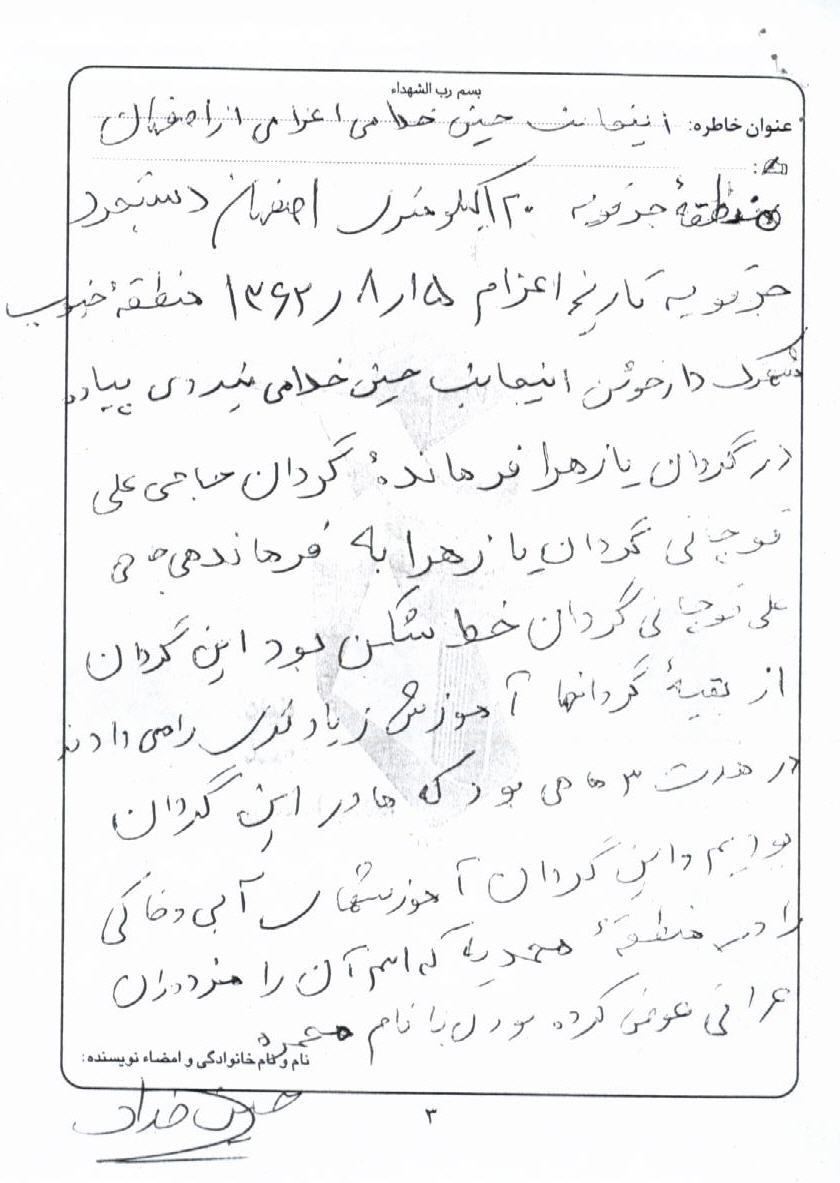 بسم رب الشهداء
عنوان خاطره: اینجانب حسین خدامی اعزامی از اصفهان
منطقهٔ جرقویه ۱۲۰ کیلومتری اصفهان دستجرد
جرقویه تاریخ اعزام ۱۵ر۸ر۱۳۶۲ منطقهٔ جنوب
شهرک دارخوئن اینجانب حسین خدامی نیروی پیاده
در گردان یا زهرا فرماندهٔ گردان حاجی علی
قوچانی گردان یا زهرا به فرماندهی حاجی
علی قوچانی گردان خط شکن بود این گردان
از بقیهٔ گردانها آموزش زیادتری را می دادند
در مدت ۳ ماهی بود که ما در این گردان
بودیم و این گردان آموزشهای آبی و خاکی
را در منطقهٔ محمدیه که اسم آن را مزدوران
عراقی عوض کرده بودن با نام محمره
نام و نام خانوادگی و امضاء نویسنده:
حسین خدامی
۳